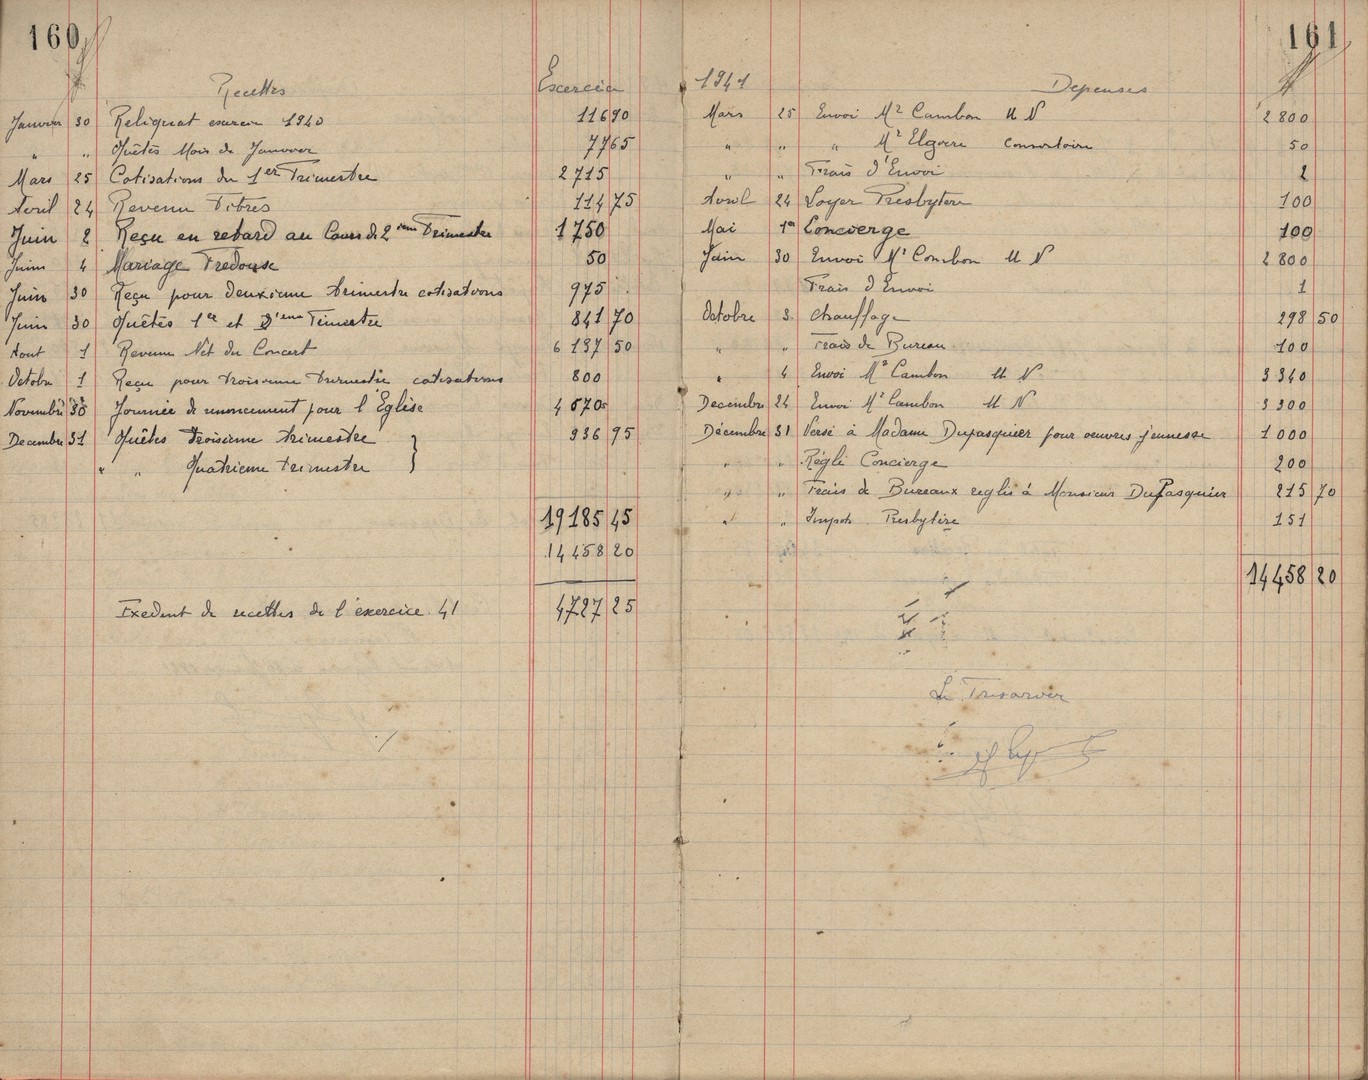 160
Recettes Exercice
Janvier 30 Reliquat exercice 1940 116 90
" " Quêtes Mois de Janvier 77 65
Mars 25 Cotisations du 1er Trimestre 2 715
Avril 24 Revenu Titres 114 75
Juin 2 Reçu en retard au Cours du 2ieme Trimestre 1 750
Juin 4 Mariage 50
Juin 30 Reçu pour deuxieme trimestre cotisations 975
Juin 30 Quêtes 1er et 2ieme Trimestre 841 70
Aout 1 Revenu Net du Concert 6 137 50
Octobre 1 Reçu pour troisieme trimestre cotisations 800
Novembre 30 Journée de renoncement pour l'Église 4 670
Decembre 31 Quêtes troisieme trimestre 936 95
" " Quatrieme trimestre
19185 45
14458 20
Exedent de recettes de l'exercice 41 4727 25
161
1941 Depenses
Mars 25 Envoi Mr Cambon U N 2 800
" " " Mr Consistoire 50
" " Frais d'Envoi 2
Avril 24 Loyer Presbytere 100
Mai 1er Concierge 100
Juin 30 Envoi Mr Cambon U N 2 800
Frais d'Envoi 1
Octobre 3 Chauffage 298 50
" " Frais de Bureau 100
" 4 Envoi Mr Cambon U N 3 340
Decembre 24 Envoi Mr Cambon U N 3 300
Décembre 31 Versé à Madame Dupasquier pour oeuvres jeunesse 1 000
" " Réglé Concierge 200
" " Frais de Bureaux reglés à Monsieur DuPasquier 215 70
" " Impots Presbytère 151
14458 20
Le Tresorier